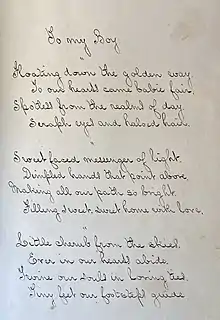 To my Boy
Floating down the golden way
To our hearts came babie fair.
Spotless from the realms of day.
Seraph eyes and haloed hair.
Sweet faced messenger of light.
Dimpled hands that point above
Making all our path so bright.
Filling sweet, sweet home with love.
Little cherub from the skies.
Ever in our hearts abide.
Twine our souls in loving ties.
Tiny feet our footsteps guide